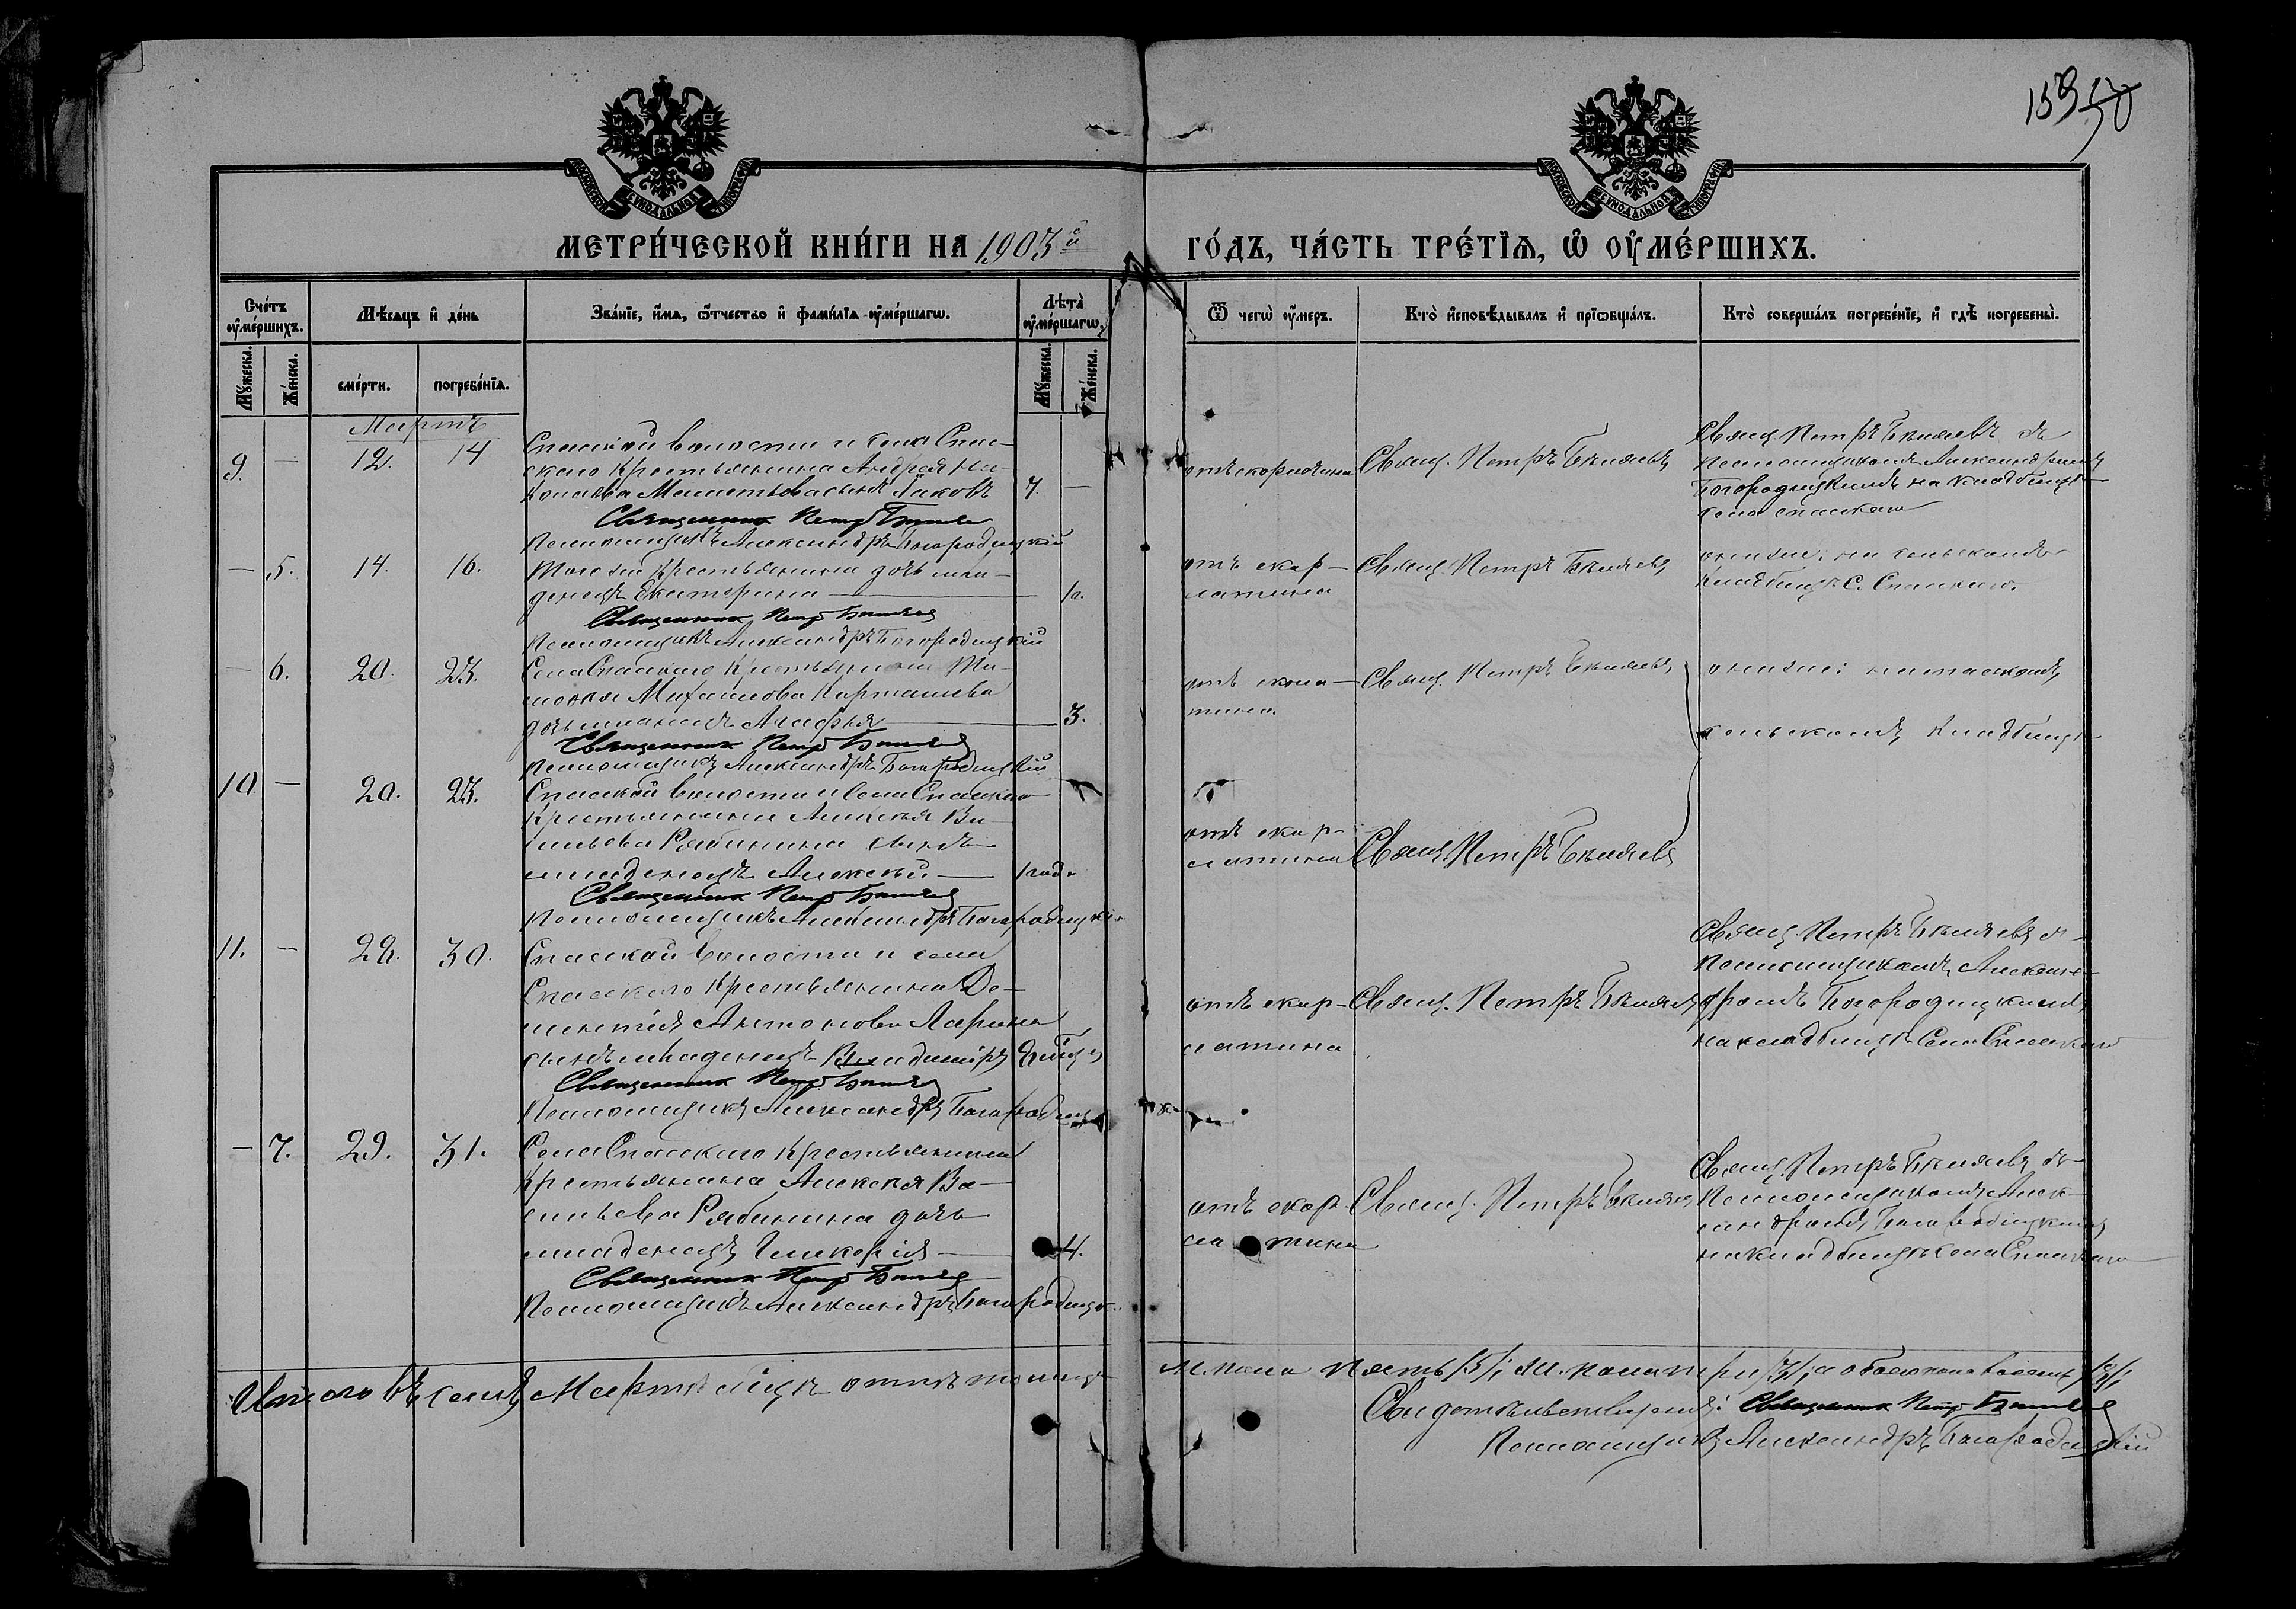 159 50
МОСКОВСКОЙ СѴНОДАЛЬНОЙ ТИПОГРАФІИ
МОСКОВСКОЙ СѴНОДАЛЬНОЙ ТИПОГРАФІИ
МЕТРИ́ЧЕСКОЙ КНИ́ГИ НА 1903й
ГО́ДЪ, ЧА́СТЬ ТРЕ́ТЇѦ, Ѽ ОУ҆МЕ́РШИХЪ.
Сче́тъ оу҆ме́ршихъ.
Мѣ́сѧцъ и҆ де́нь
Зва́нїе, и҆́мѧ, ѻ҆́тчество и҆ фами́лїѧ оу҆ме́ршагѡ.
Лѣ́та̀ оу҆ме́ршагѡ.
Ѿ чегѡ̀ оу҆́меръ.
Кто̀ и҆сповѣ́дывалъ и҆ прїѡбща́лъ.
Кто̀ соверша́лъ погребе́нїе, и҆ гдѣ̀ погребены̀.
Мꙋ́жеска.
Же́нска.
сме́рти.
погребе́нїѧ.
Мꙋ́жеска.
Же́нска.
Мартъ
9. — 12. 14
Спасской волости и села Спас-
скаго крестьянина Андрея Ни-
колаева сынъ Яковъ 7. —
Священникъ Петръ Бѣляевъ
Псаломщикъ Александръ Богородицкій
отъ скарлатины
Свящ. Петръ Бѣляевъ
Свящ. Петръ Бѣляевъ съ
псаломщикомъ Александромъ
Богородицкимъ на кладбищѣ
села Спасскаго
— 5. 14. 16.
Того же крестьянина дочь мла-
денецъ Екатерина —
Священникъ Петръ Бѣляевъ
Псаломщикъ Александръ Богородицкій
отъ скар-
латины
Свящ. Петръ Бѣляевъ
онизже: на сельскомъ
кладбищѣ с. Спасскаго.
— 6. 20. 23.
Села Спасскаго крестьянина Ти-
мофея Михайлова Карташева
дочь младенецъ Агафья — 3.
Священникъ Петръ Бѣляевъ
Псаломщикъ Александръ Богородицкій
отъ скарла-
тины.
Свящ. Петръ Бѣляевъ
сельскомъ кладбищѣ
10 — 20. 23.
Спасской волости и села Спасскаго
крестьянина Алексѣя Ва-
сильева Рябинина сынъ
младенецъ Алексѣй — 1 года
Священникъ Петръ Бѣляевъ
Псаломщикъ Александръ Богородицкій
отъ скар-
латины
Свящ. Петръ Бѣляевъ
11. — 28. 30.
Спасской волости и села
Спасскаго крестьянина Де-
ментія Антонова Ларина
сынъ младенецъ Владиміръ
Священникъ Петръ Бѣляевъ
Псаломщикъ Александръ Богородицкій
отъ скар-
латины
Свящ. Петръ Бѣляевъ
Свящ. Петръ Бѣляевъ съ
псаломщикомъ Алексан-
дромъ Богородицкимъ
на кладбищѣ села Спасскаго
— 7. 29. 31.
Села Спасскаго крестьянина
крестьянина Алексѣя Ва-
сильева Рябинина дочь
младенецъ Гликерія — 4.
Священникъ Петръ Бѣляевъ
Псаломщикъ Александръ Богородицкій
отъ скар-
латины
Свящ. Петръ Бѣляевъ
Свящ. Петръ Бѣляевъ съ
псаломщикомъ Алек-
сандромъ Богородицкимъ
на кладбищѣ села Спасскаго
Итого въ семъ Мартѣ м-цѣ
м. пола пять /5/, ж. пола три /3/, а обоего пола восемь /8/,
Свидѣтельствуемъ: Священникъ Петръ Бѣляевъ
Псаломщикъ Александръ Богородицкій